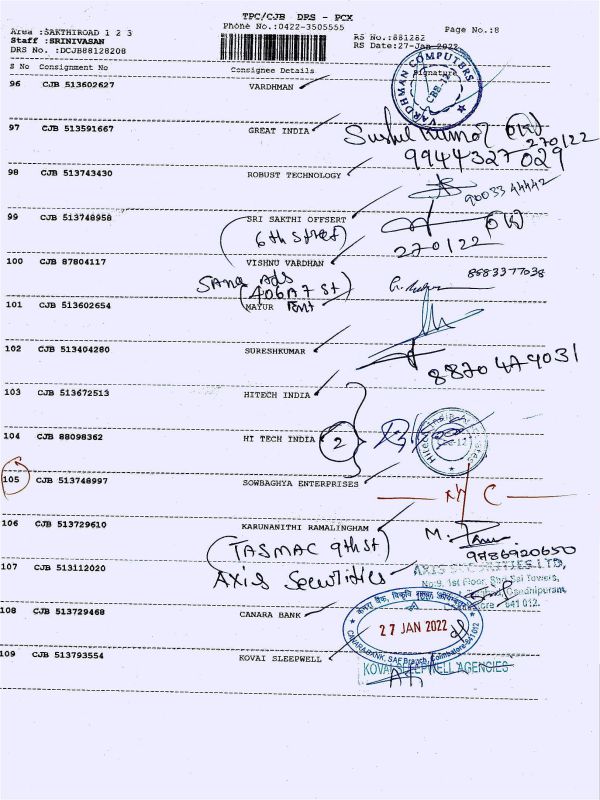 TPC/CJB DRS - PCX
Area :SAKTHIROAD 1 2 3
Phone No.:0422-3505555
Page No.:8
Staff :SRINIVASAN
RS No.:881282
DRS No. :DCJB88128208
RS Date:27-Jan-2022
S No Consignment No Consignee Details Signature
96 CJB 513602627 VARDHMAN
VARDHMAN COMPUTERS
CBE-12
97 CJB 513591667 GREAT INDIA
Sushil Kumar
270122
9944327029
98 CJB 513743430 ROBUST TECHNOLOGY
9003344442
99 CJB 513748958 SRI SAKTHI OFFSERT
(6th Street)
270122
100 CJB 87804117 VISHNU VARDHAN
8883377038
Sana Ads
(406A 7 St)
101 CJB 513602654 MAYUR
102 CJB 513404280 SURESHKUMAR
8870479031
103 CJB 513672513 HITECH INDIA
104 CJB 88098362 HI TECH INDIA
2
105 CJB 513748997 SOWBAGHYA ENTERPRISES
N C
106 CJB 513729610 KARUNANITHI RAMALINGHAM
M.
(TASMAC 9th St)
9786920650
107 CJB 513112020 Axis Securities
AXIS SECURITIES LTD,
No:9, 1st Floor, Shri Sai Towers,
Gandhipuram,
641 012.
108 CJB 513729468 CANARA BANK
27 JAN 2022
CANARA BANK, SAF Branch, Coimbatore-641 012
109 CJB 513793554 KOVAI SLEEPWELL
KOVAI SLEEPWELL AGENCIES